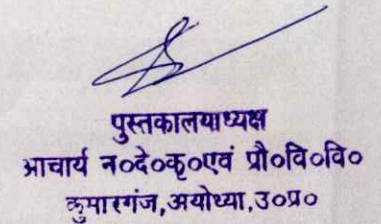 पुस्तकालयाध्यक्ष
आचार्य न०दे०कृ०एवं प्रौ०वि०वि०
कुमारगंज,अयोध्या,उ०प्र०